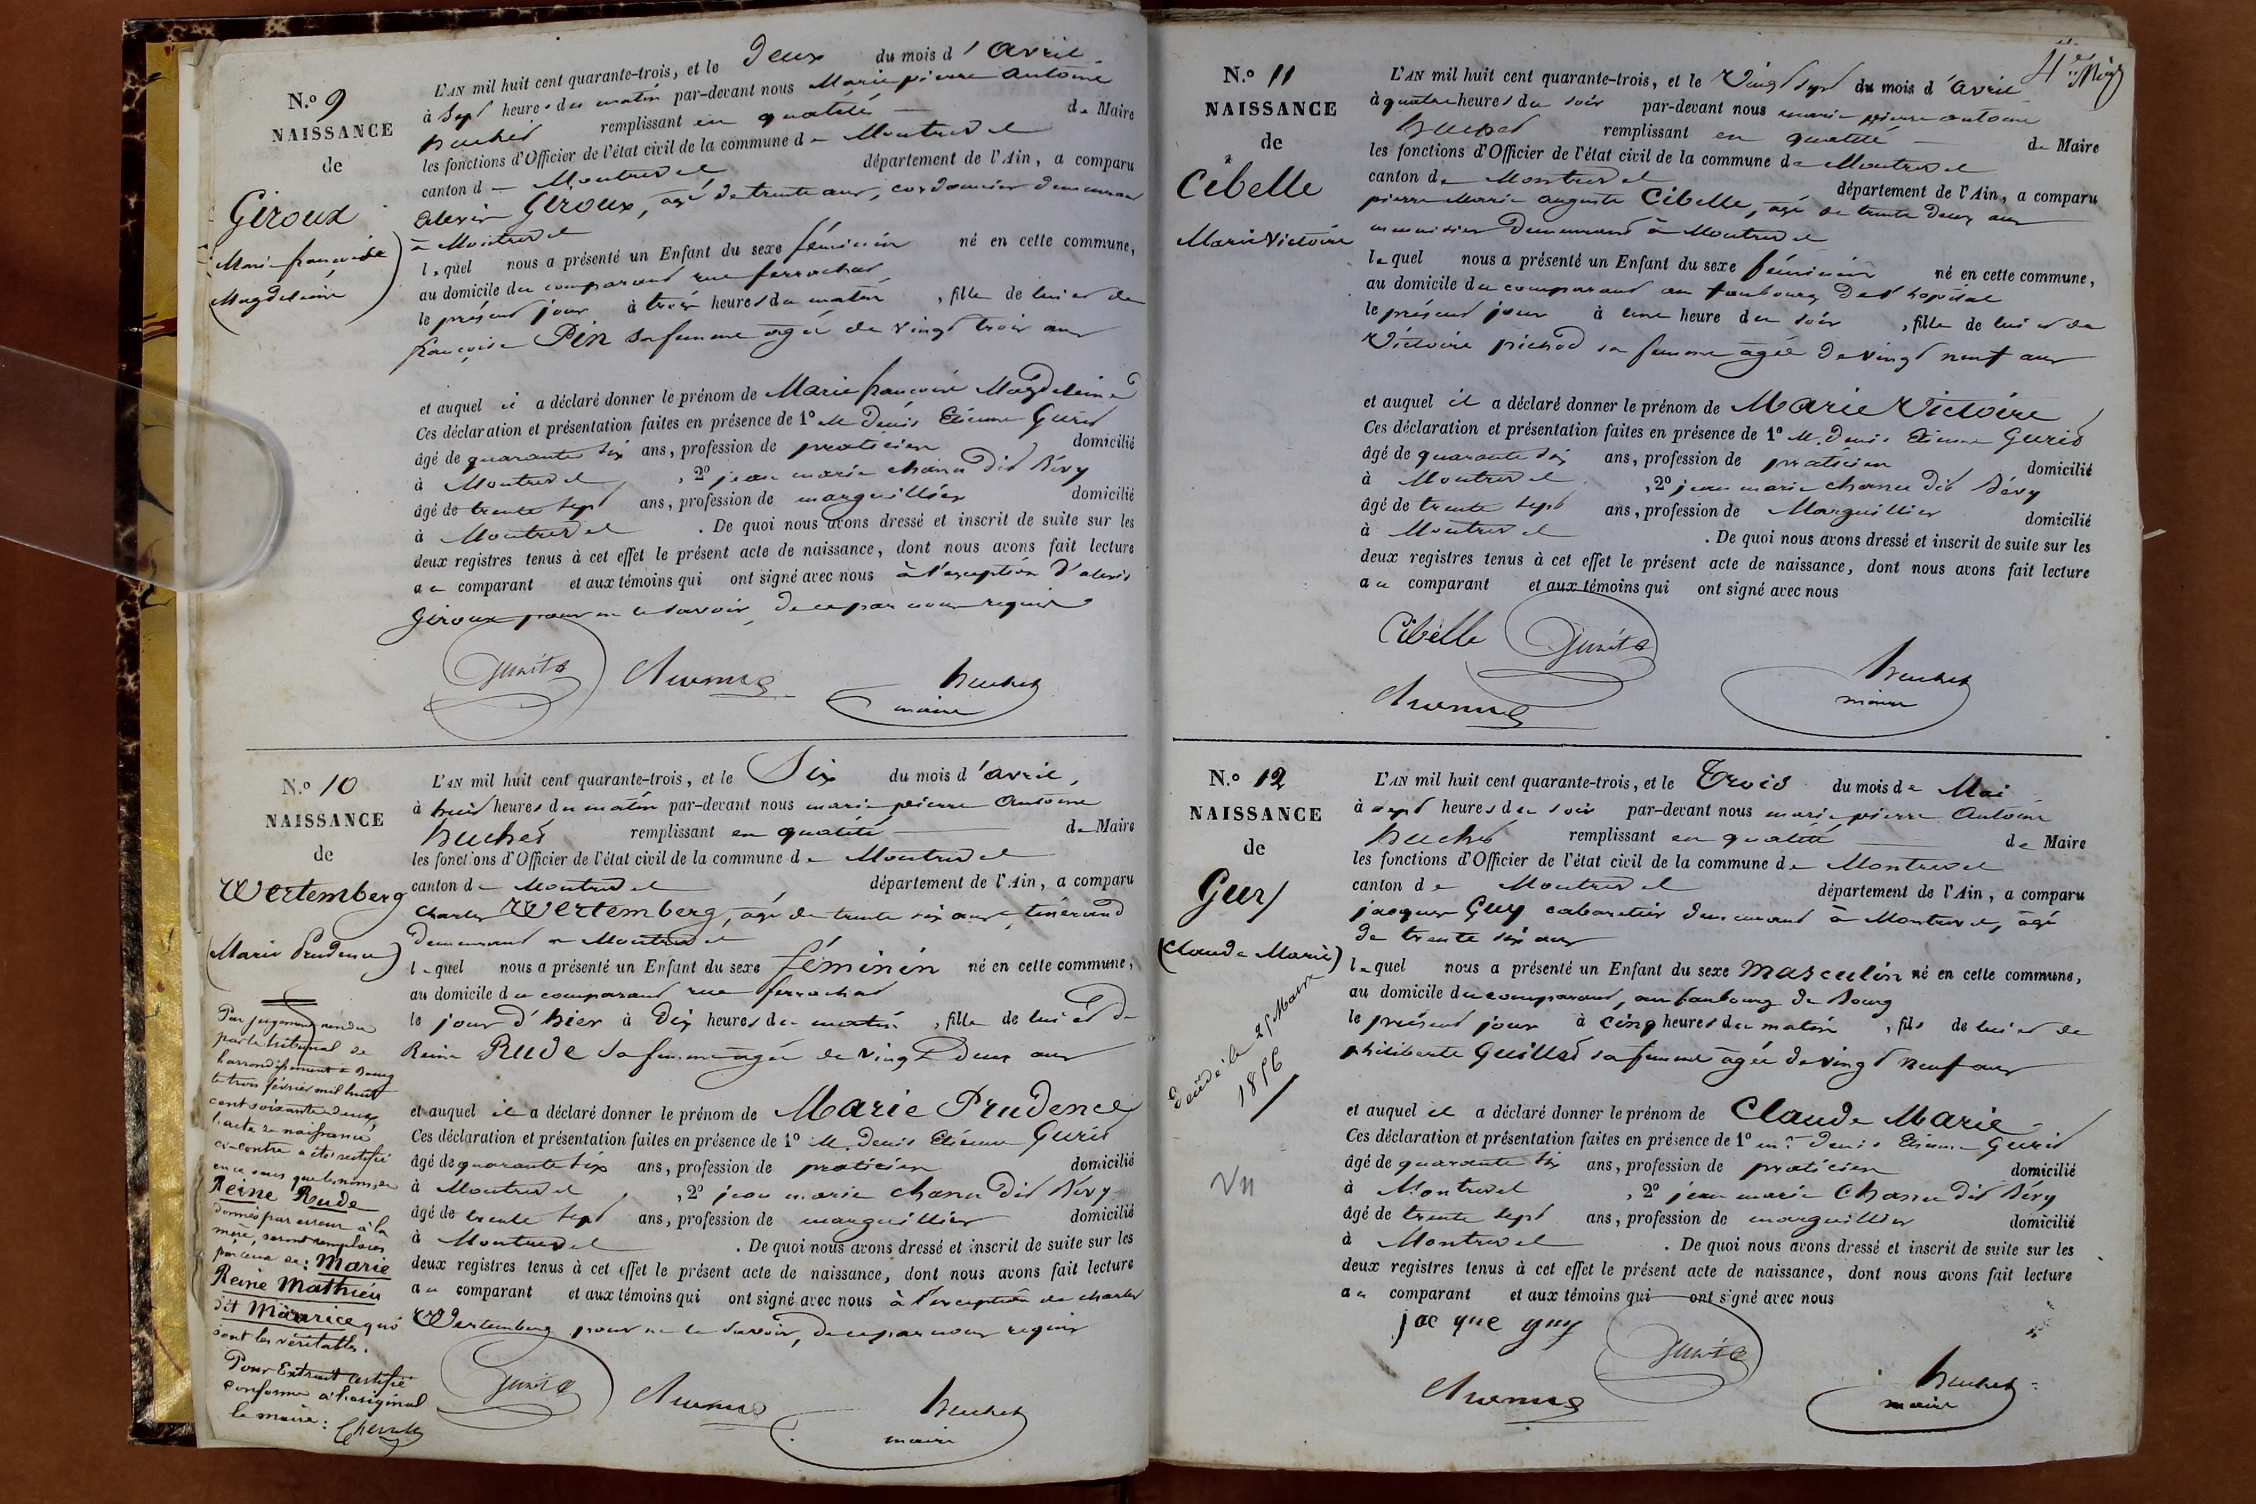 N.o 9
NAISSANCE
de
Giroux
(Marie françoise
Magdeleine)
L'AN mil huit cent quarante-trois, et le Deux du mois d'avril
à Sept heures du matin par-devant nous Marie pierre antoine
huchet remplissant en qualité de Maire
les fonctions d'Officier de l'état civil de la commune de Montrevel
canton de Montrevel département de l'Ain, a comparu
alexis Giroux, agé de trente ans, cordonnier demeurant
à Montrevel
lequel nous a présenté un Enfant du sexe féminin né en cette commune,
au domicile du comparant rue ferrachat
le présent jour à trois heures du matin, fille de lui et de
françoise Pin sa femme agée de vingt trois ans
et auquel il a déclaré donner le prénom de Marie françoise Magdeleine
Ces déclaration et présentation faites en présence de 1o M. Denis Etienne Gurit
âgé de quarante six ans, profession de praticien domicilié
à Montrevel, 2o jean marie chanu dit
âgé de trente sept ans, profession de marguillier domicilié
à Montrevel. De quoi nous avons dressé et inscrit de suite sur les
deux registres tenus à cet effet le présent acte de naissance, dont nous avons fait lecture
au comparant et aux témoins qui ont signé avec nous à l'exception d'alexis
Giroux pour ne le savoir, de ce par nous requis
huchet
maire
N.o 10
NAISSANCE
de
Wertemberg
(Marie Prudence)
Par jugement rendu
par le tribunal de
l'arrondissement de Bourg
le trois février mil huit
cent soixante deux,
l'acte de naissance
ci-contre a été rectifié
en ce sens que les noms de
Reine Rude
donnés par erreur à la
mère, seront remplacés
par ceux de: Marie
Reine Mathieu
dit Maurice qui
sont les véritables.
Pour Extrait certifié
conforme à l'original
le maire:
L'AN mil huit cent quarante-trois, et le Six du mois d'avril,
à huit heures du matin par-devant nous marie pierre Antoine
huchet remplissant en qualité de Maire
les fonctions d'Officier de l'état civil de la commune de Montrevel
canton de Montrevel département de l'Ain, a comparu
Charles Wertemberg, agé de trente six ans,
demeurant à Montrevel
lequel nous a présenté un Enfant du sexe féminin né en cette commune,
au domicile du comparant rue ferrachat
le jour d'hier à Dix heures du matin, fille de lui et de
Reine Rude sa femme agée de vingt Deux ans
et auquel il a déclaré donner le prénom de Marie Prudence
Ces déclaration et présentation faites en présence de 1o M. Denis Etienne Gurit
âgé de quarante six ans, profession de praticien domicilié
à Montrevel, 2o jean marie chanu dit
âgé de trente sept ans, profession de marguillier domicilié
à Montrevel. De quoi nous avons dressé et inscrit de suite sur les
deux registres tenus à cet effet le présent acte de naissance, dont nous avons fait lecture
au comparant et aux témoins qui ont signé avec nous à l'exception de charles
Wertemberg pour ne le savoir, de ce par nous requis
huchet
maire
N.o 11
NAISSANCE
de
Cibelle
Marie Victoire
L'AN mil huit cent quarante-trois, et le Vingt sept du mois d'avril
à quatre heures du soir par-devant nous marie pierre antoine
huchet remplissant en qualité de Maire
les fonctions d'Officier de l'état civil de la commune de Montrevel
canton de Montrevel département de l'Ain, a comparu
pierre Marie auguste Cibelle, agé de trente deux ans
menuisier demeurant à Montrevel
lequel nous a présenté un Enfant du sexe féminin né en cette commune,
au domicile du comparant au faubourg de l'hopital
le présent jour à une heure du soir, fille de lui et de
Victoire pichod sa femme agée de vingt neuf ans
et auquel il a déclaré donner le prénom de Marie Victoire
Ces déclaration et présentation faites en présence de 1o M. Denis Etienne Gurit
âgé de quarante six ans, profession de praticien domicilié
à Montrevel, 2o jean marie chanu dit
âgé de trente sept ans, profession de Marguillier domicilié
à Montrevel. De quoi nous avons dressé et inscrit de suite sur les
deux registres tenus à cet effet le présent acte de naissance, dont nous avons fait lecture
au comparant et aux témoins qui ont signé avec nous
Cibelle
huchet
maire
N.o 12
NAISSANCE
de
Guy
(Claude Marie)
Décédé le 25 Mars
1856
Vu
L'AN mil huit cent quarante-trois, et le Trois du mois de Mai
à sept heures du soir par-devant nous marie pierre Antoine
huchet remplissant en qualité de Maire
les fonctions d'Officier de l'état civil de la commune de Montrevel
canton de Montrevel département de l'Ain, a comparu
jacques Guy cabaretier demeurant à Montrevel, agé
de trente six ans
lequel nous a présenté un Enfant du sexe masculin né en cette commune,
au domicile du comparant, au faubourg de Bourg
le présent jour à cinq heures du matin, fils de lui et de
philiberte Guillod sa femme agée de vingt neuf ans
et auquel il a déclaré donner le prénom de Claude Marie
Ces déclaration et présentation faites en présence de 1o Mr Denis Etienne Gurit
âgé de quarante six ans, profession de praticien domicilié
à Montrevel, 2o jean marie Chanu dit
âgé de trente sept ans, profession de marguillier domicilié
à Montrevel. De quoi nous avons dressé et inscrit de suite sur les
deux registres tenus à cet effet le présent acte de naissance, dont nous avons fait lecture
au comparant et aux témoins qui ont signé avec nous
jac que guy
huchet
maire